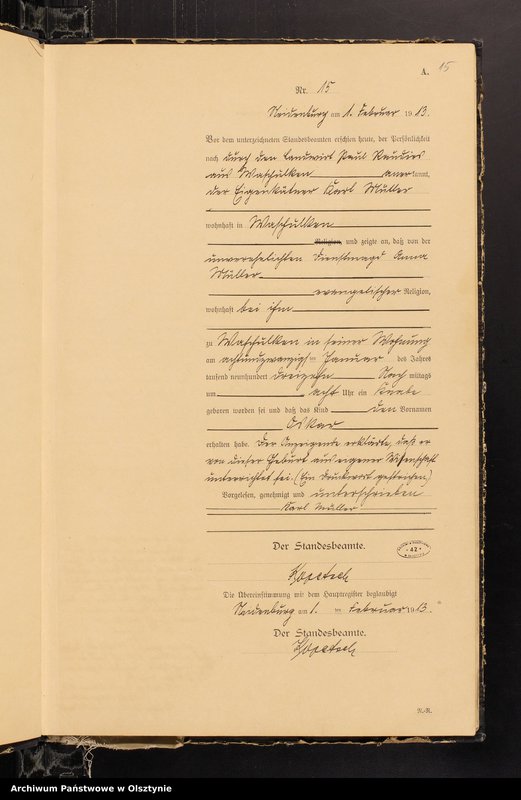 A. 15
Nr. 15
Neidenburg am 1. Februar 1913.
Vor dem unterzeichneten Standesbeamten erschien heute, der Persönlichkeit
nach durch den Landwirt Paul
aus Waschulken anerkannt,
der Eigenkätner Karl Müller
wohnhaft in Waschulken
Religion, und zeigte an, daß von der
unverehelichten Dienstmagd Anna
Müller
evangelischer Religion,
wohnhaft bei ihm
zu Waschulken in seiner Wohnung
am achtundzwanzigsten Januar des Jahres
tausend neunhundert dreizehn Nachmittags
um acht Uhr ein Knabe
geboren worden sei und daß das Kind den Vornamen
Oskar
erhalten habe. Der Anzeigende erklärte, daß er
von dieser Geburt aus eigener Wissenschaft
unterrichtet sei. (Ein Druckwort gestrichen)
Vorgelesen, genehmigt und unterschrieben
Karl Müller
Der Standesbeamte.
42
Kopetsch
Die Übereinstimmung mit dem Hauptregister beglaubigt
Neidenburg am 1. ten Februar 1913.
Der Standesbeamte.
Kopetsch
Archiwum Państwowe w Olsztynie